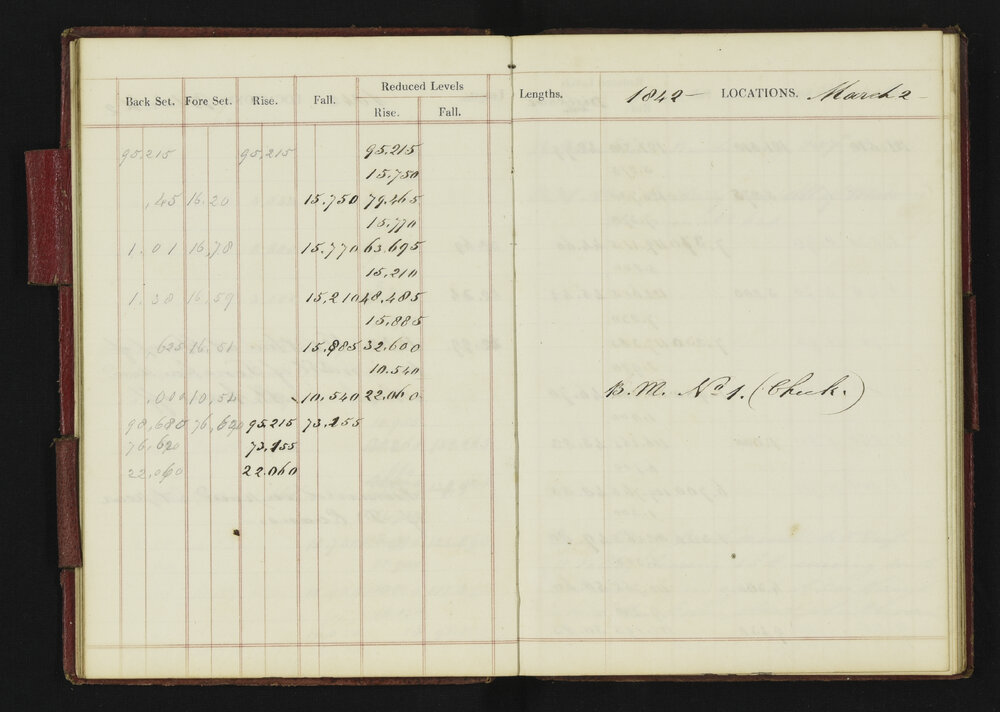 Reduced Levels
Back Set. Fore Set. Rise. Fall. Rise. Fall. Lengths. 1842 — LOCATIONS. March 2 —
95,215 95,215 95.215
15.750
,45 16,20 15.750 79.465
15.770
1.01 16,78 15.770 63.695
15.210
1.30 16,59 15.210 48.485
15.885
625 16,51 15.885 32.600
10.540
,000 10,54 10.540 22.060 B.M. No 1. (Check.)
98,680 76,620 95.215 73.155
76,620 73.155
22,060 22.060